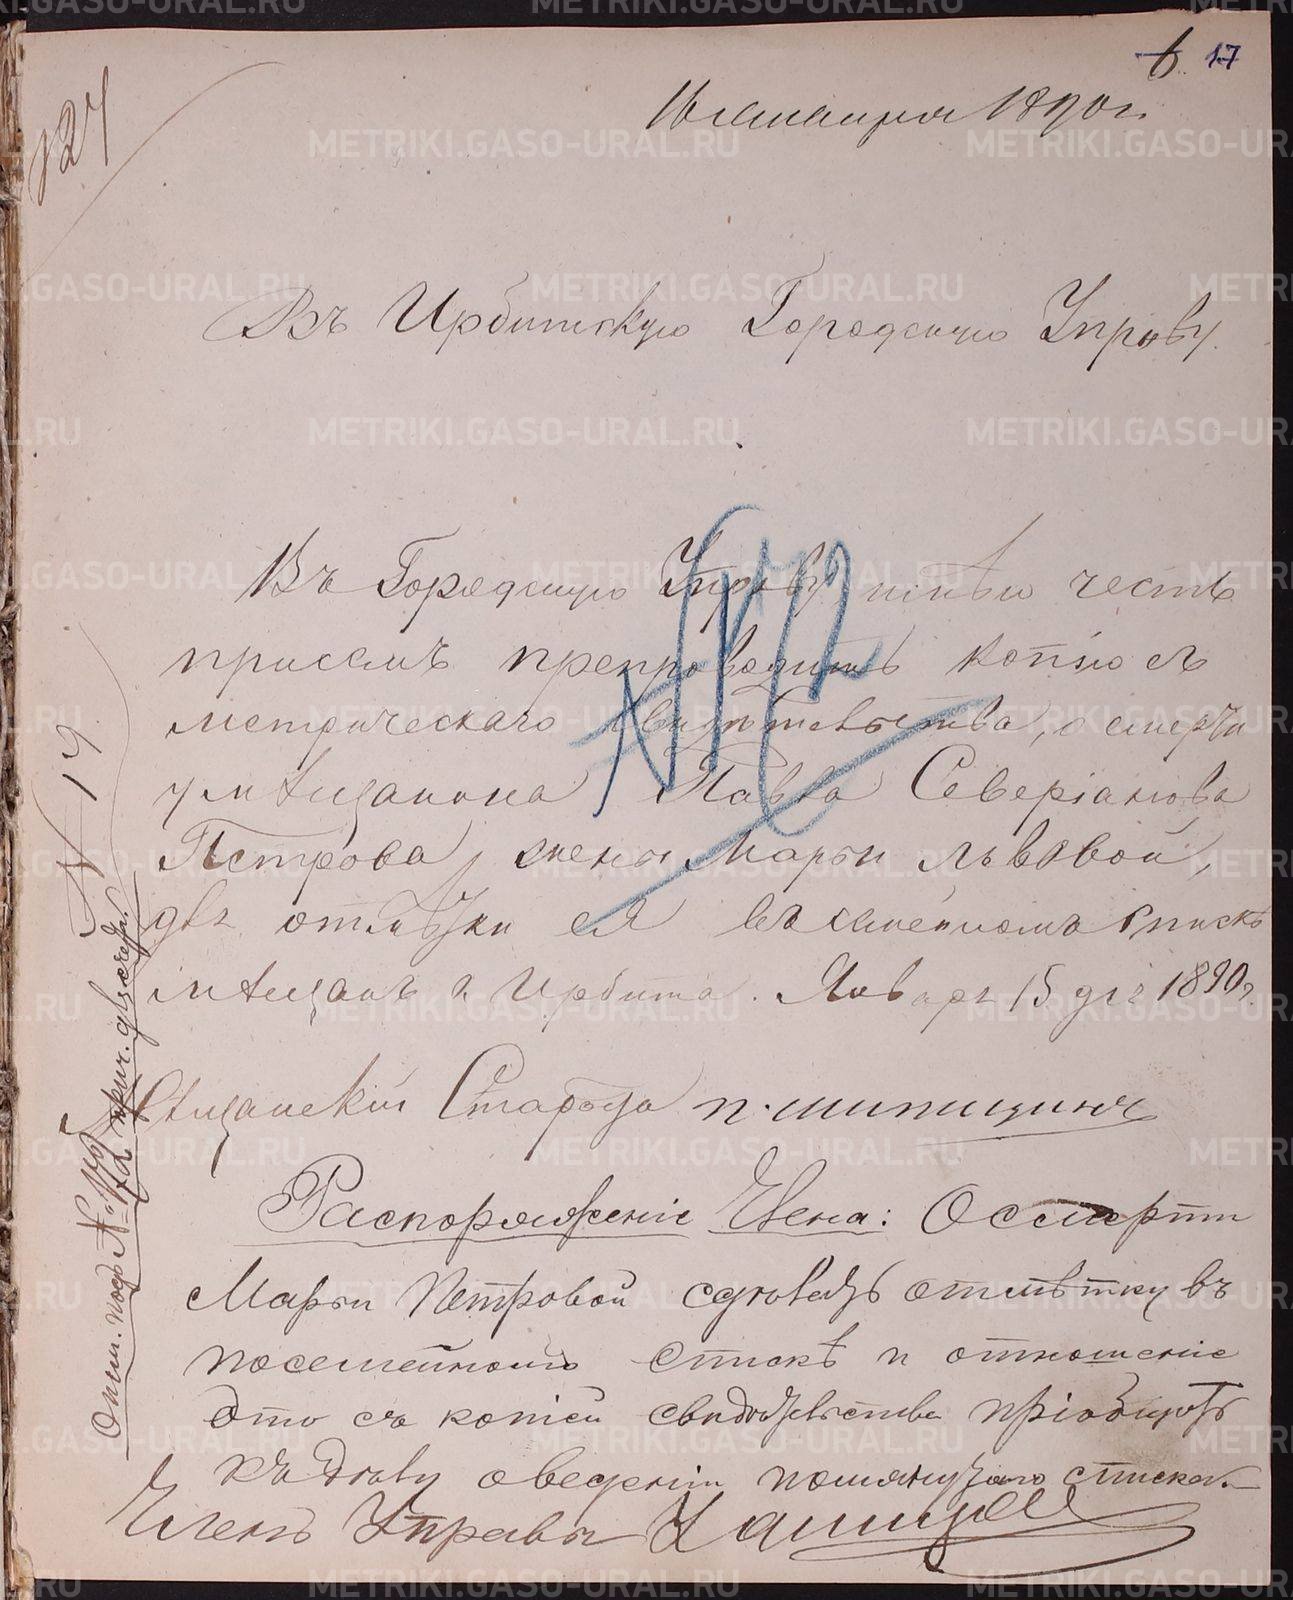 6. 17
16 Января 1890 г.
Въ Ирбитскую Городскую Управу.
Въ Городскую Управу имѣю честь
присемъ препроводить копію съ
метрическаго свидѣтельства, о смерти
у мѣщанина Павла Северіанова
Петрова, жены Марьи Львовой,
для отмѣтки ея въ семейномъ списке
мѣщанъ г. Ирбита. Январь 15 дня 1890 г.
Мѣщанскій Староста П. Шипицинъ
Распоряженіе Члена: О смерти
Марьи Петровой сдѣлать отмѣтку въ
посемейномъ списке и отношеніе
это съ копіей свидѣтельства пріобщить
къ дѣлу о веденіи помянутаго списка.
Членъ Управы
№ 19
METRIKI.GASO-URAL.RU